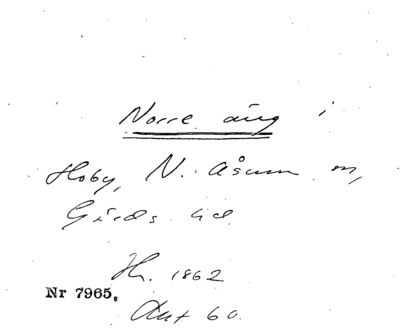 Norre äng i
Hoby, N. Åsum m,
Gärds hd.
Hr. 1862
Nr 7965.
Akt 60